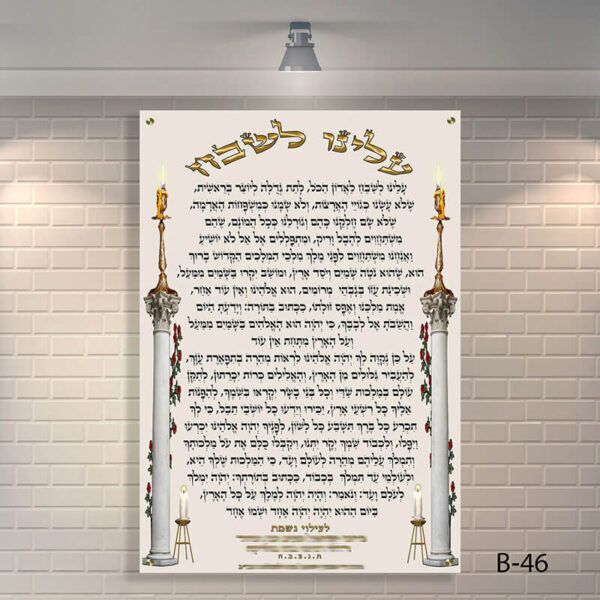 עלינו לשבח
עָלֵינוּ לְשַׁבֵּחַ לַאֲדוֹן הַכֹּל, לָתֵת גְּדֻלָּה לְיוֹצֵר בְּרֵאשִׁית,
שֶׁלֹּא עָשָׂנוּ כְּגוֹיֵי הָאֲרָצוֹת, וְלֹא שָׂמָנוּ כְּמִשְׁפְּחוֹת הָאֲדָמָה,
שֶׁלֹּא שָׂם חֶלְקֵנוּ כָּהֶם וְגוֹרָלֵנוּ כְּכָל הֲמוֹנָם, שֶׁהֵם
מִשְׁתַּחֲוִים לְהֶבֶל וָרִיק, וּמִתְפַּלְּלִים אֶל אֵל לֹא יוֹשִׁיעַ
וַאֲנַחְנוּ מִשְׁתַּחֲוִים לִפְנֵי מֶלֶךְ מַלְכֵי הַמְּלָכִים הַקָּדוֹשׁ בָּרוּךְ
הוּא, שֶׁהוּא נוֹטֶה שָׁמַיִם וְיֹסֵד אָרֶץ, וּמוֹשַׁב יְקָרוֹ בַּשָּׁמַיִם מִמַּעַל,
וּשְׁכִינַת עֻזּוֹ בְּגָבְהֵי מְרוֹמִים, הוּא אֱלֹהֵינוּ וְאֵין עוֹד אַחֵר,
אֱמֶת מַלְכֵּנוּ וְאֶפֶס זוּלָתוֹ, כַּכָּתוּב בַּתּוֹרָה: וְיָדַעְתָּ הַיּוֹם
וַהֲשֵׁבֹתָ אֶל לְבָבֶךָ, כִּי יְהֹוָה הוּא הָאֱלֹהִים בַּשָּׁמַיִם מִמַּעַל
וְעַל הָאָרֶץ מִתָּחַת אֵין עוֹד
עַל כֵּן נְקַוֶּה לְךָ יְהֹוָה אֱלֹהֵינוּ לִרְאוֹת מְהֵרָה בְּתִפְאֶרֶת עֻזֶּךָ,
לְהַעֲבִיר גִּלּוּלִים מִן הָאָרֶץ, וְהָאֱלִילִים כָּרוֹת יִכָּרֵתוּן, לְתַקֵּן
עוֹלָם בְּמַלְכוּת שַׁדַּי וְכָל בְּנֵי בָשָׂר יִקְרְאוּ בִשְׁמֶךָ, לְהַפְנוֹת
אֵלֶיךָ כָּל רִשְׁעֵי אָרֶץ, יַכִּירוּ וְיֵדְעוּ כָּל יוֹשְׁבֵי תֵבֵל, כִּי לְךָ
תִּכְרַע כָּל בֶּרֶךְ תִּשָּׁבַע כָּל לָשׁוֹן, לְפָנֶיךָ יְהֹוָה אֱלֹהֵינוּ יִכְרְעוּ
וְיִפֹּלוּ, וְלִכְבוֹד שִׁמְךָ יְקָר יִתֵּנוּ, וִיקַבְּלוּ כֻלָּם אֶת עֹל מַלְכוּתֶךָ
וְתִמְלֹךְ עֲלֵיהֶם מְהֵרָה לְעוֹלָם וָעֶד, כִּי הַמַּלְכוּת שֶׁלְּךָ הִיא,
וּלְעוֹלְמֵי עַד תִּמְלֹךְ בְּכָבוֹד, כַּכָּתוּב בְּתוֹרָתֶךָ: יְהֹוָה יִמְלֹךְ
לְעֹלָם וָעֶד: וְנֶאֱמַר: וְהָיָה יְהֹוָה לְמֶלֶךְ עַל כָּל הָאָרֶץ,
בַּיּוֹם הַהוּא יִהְיֶה יְהֹוָה אֶחָד וּשְׁמוֹ אֶחָד
לעילוי נשמת
ת.נ.צ.ב.ה
B-46